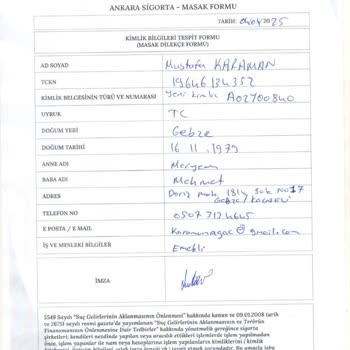 ANKARA SİGORTA – MASAK FORMU
TARİH: 04.04/2025
KİMLİK BİLGİLERİ TESPİT FORMU
(MASAK DİLEKÇE FORMU)
AD SOYAD Mustafa KARAMAN
TCKN 19646134352
KİMLİK BELGESİNİN TÜRÜ VE NUMARASI Yeni kimlik A02700840
UYRUK TC
DOĞUM YERİ Gebze
DOĞUM TARİHİ 16 11.1979
ANNE ADI Meryem
BABA ADI Mehmet
ADRES Deniz mah. 1814 Sok No17
Gebze/Kocaeli
TELEFON NO 0507 712 4645
E POSTA / E MAIL @gmail.com
İŞ VE MESLEKİ BİLGİLER Emekli
İMZA
5549 Sayılı "Suç Gelirlerinin Aklanmasının Önlenmesi" hakkında kanun ve 09.01.2008 tarih
ve 26751 sayılı resmi gazete'de yayımlanan "Suç Gelirlerinin Aklanmasının ve Terörün
Finansmanının Önlenmesine Dair Tedbirler" hakkında yönetmelik gereğince sigorta
şirketleri; kendileri nezdinde yapılan veya aracılık ettikleri işlemlerde işlem yapılmadan
önce, işlem yapanlar ile nam veya hesaplarına işlem yapılanların kimliklerini (kimlik